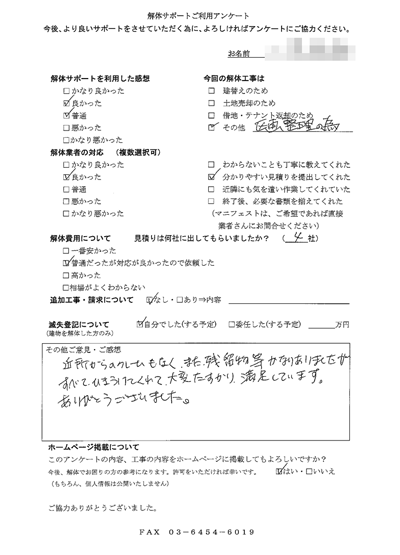 解体サポートご利用アンケート
今後、より良いサポートをさせていただく為に、よろしければアンケートにご協力ください。
お名前
解体サポートを利用した感想
□かなり良かった
☑良かった
☑普通
□悪かった
□かなり悪かった
今回の解体工事は
□ 建替えのため
□ 土地売却のため
□ 借地・テナント返却のため
☑ その他 区画整理の為
解体業者の対応 （複数選択可）
□かなり良かった
☑良かった
□普通
□悪かった
□かなり悪かった
□ わからないことも丁寧に教えてくれた
☑ 分かりやすい見積りを提出してくれた
□ 近隣にも気を遣い作業してくれていた
□ 終了後、必要な書類を揃えてくれた
（マニフェストは、ご希望であれば直接
業者さんにお問合せください）
解体費用について 見積りは何社に出してもらいましたか？ （ 4 社）
□一番安かった
☑普通だったが対応が良かったので依頼した
□高かった
□相場がよくわからない
追加工事・請求について ☑なし・□あり⇒内容
滅失登記について ☑自分でした(する予定) □委任した(する予定) 万円
(建物を解体した方のみ)
その他ご意見・ご感想
近所からのクレームもなく、また、残留物等かなりありましたが
すべてひきうけてくれて、大変たすかり、満足しています。
ありがとうございました。
ホームページ掲載について
このアンケートの内容、工事の内容をホームページに掲載してもよろしいですか？
今後、解体でお困りの方の参考になります。許可をいただければ幸いです。 ☑はい・□いいえ
（もちろん、個人情報は公開いたしません）
ご協力ありがとうございました。
FAX 03-6454-6019